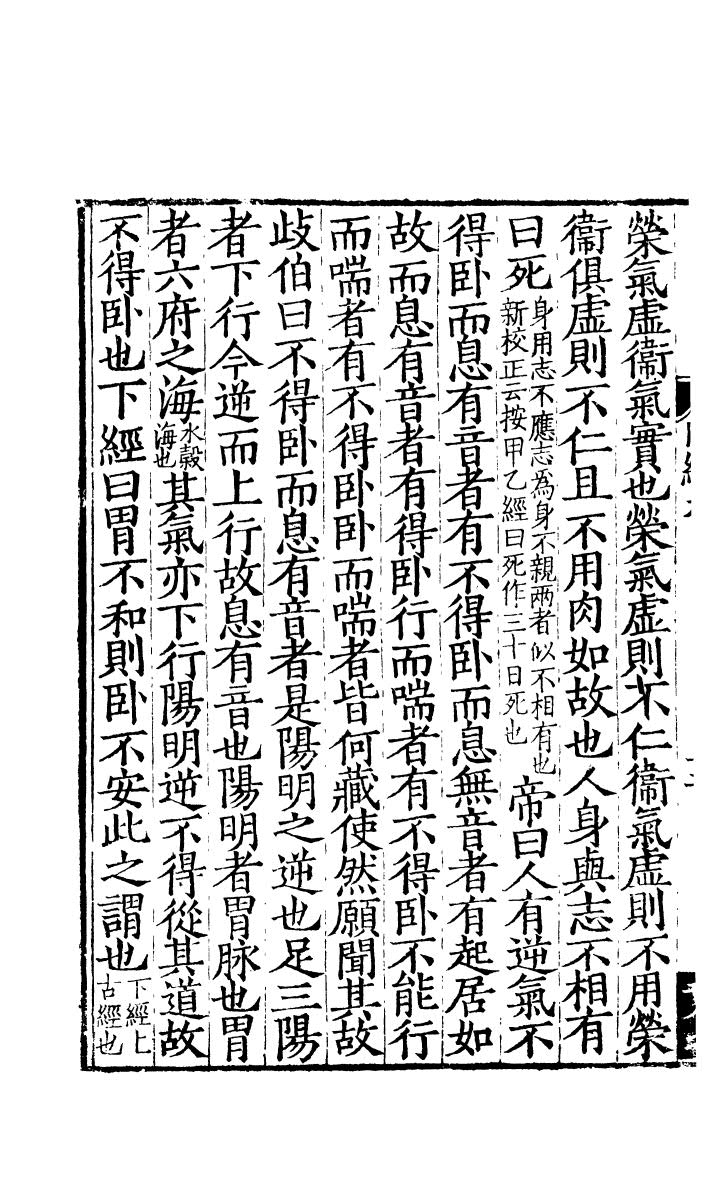 榮氣虛衞氣實也榮氣虛則不仁衞氣虛則不用榮
衞俱虛則不仁且不用肉如故也人身與志不相有
曰死身用志不應志爲身不親兩者似不相有也新校正云按甲乙經曰死作三十日死也帝曰人有逆氣不
得卧而息有音者有不得卧而息無音者有起居如
故而息有音者有得卧行而喘者有不得卧不能行
而喘者有不得卧卧而喘者皆何藏使然願聞其故
歧伯曰不得卧而息有音者是陽明之逆也足三陽
者下行今逆而上行故息有音也陽明者胃脉也胃
者六府之海水穀海也其氣亦下行陽明逆不得從其道故
不得卧也下經曰胃不和則卧不安此之謂也下經上古經也